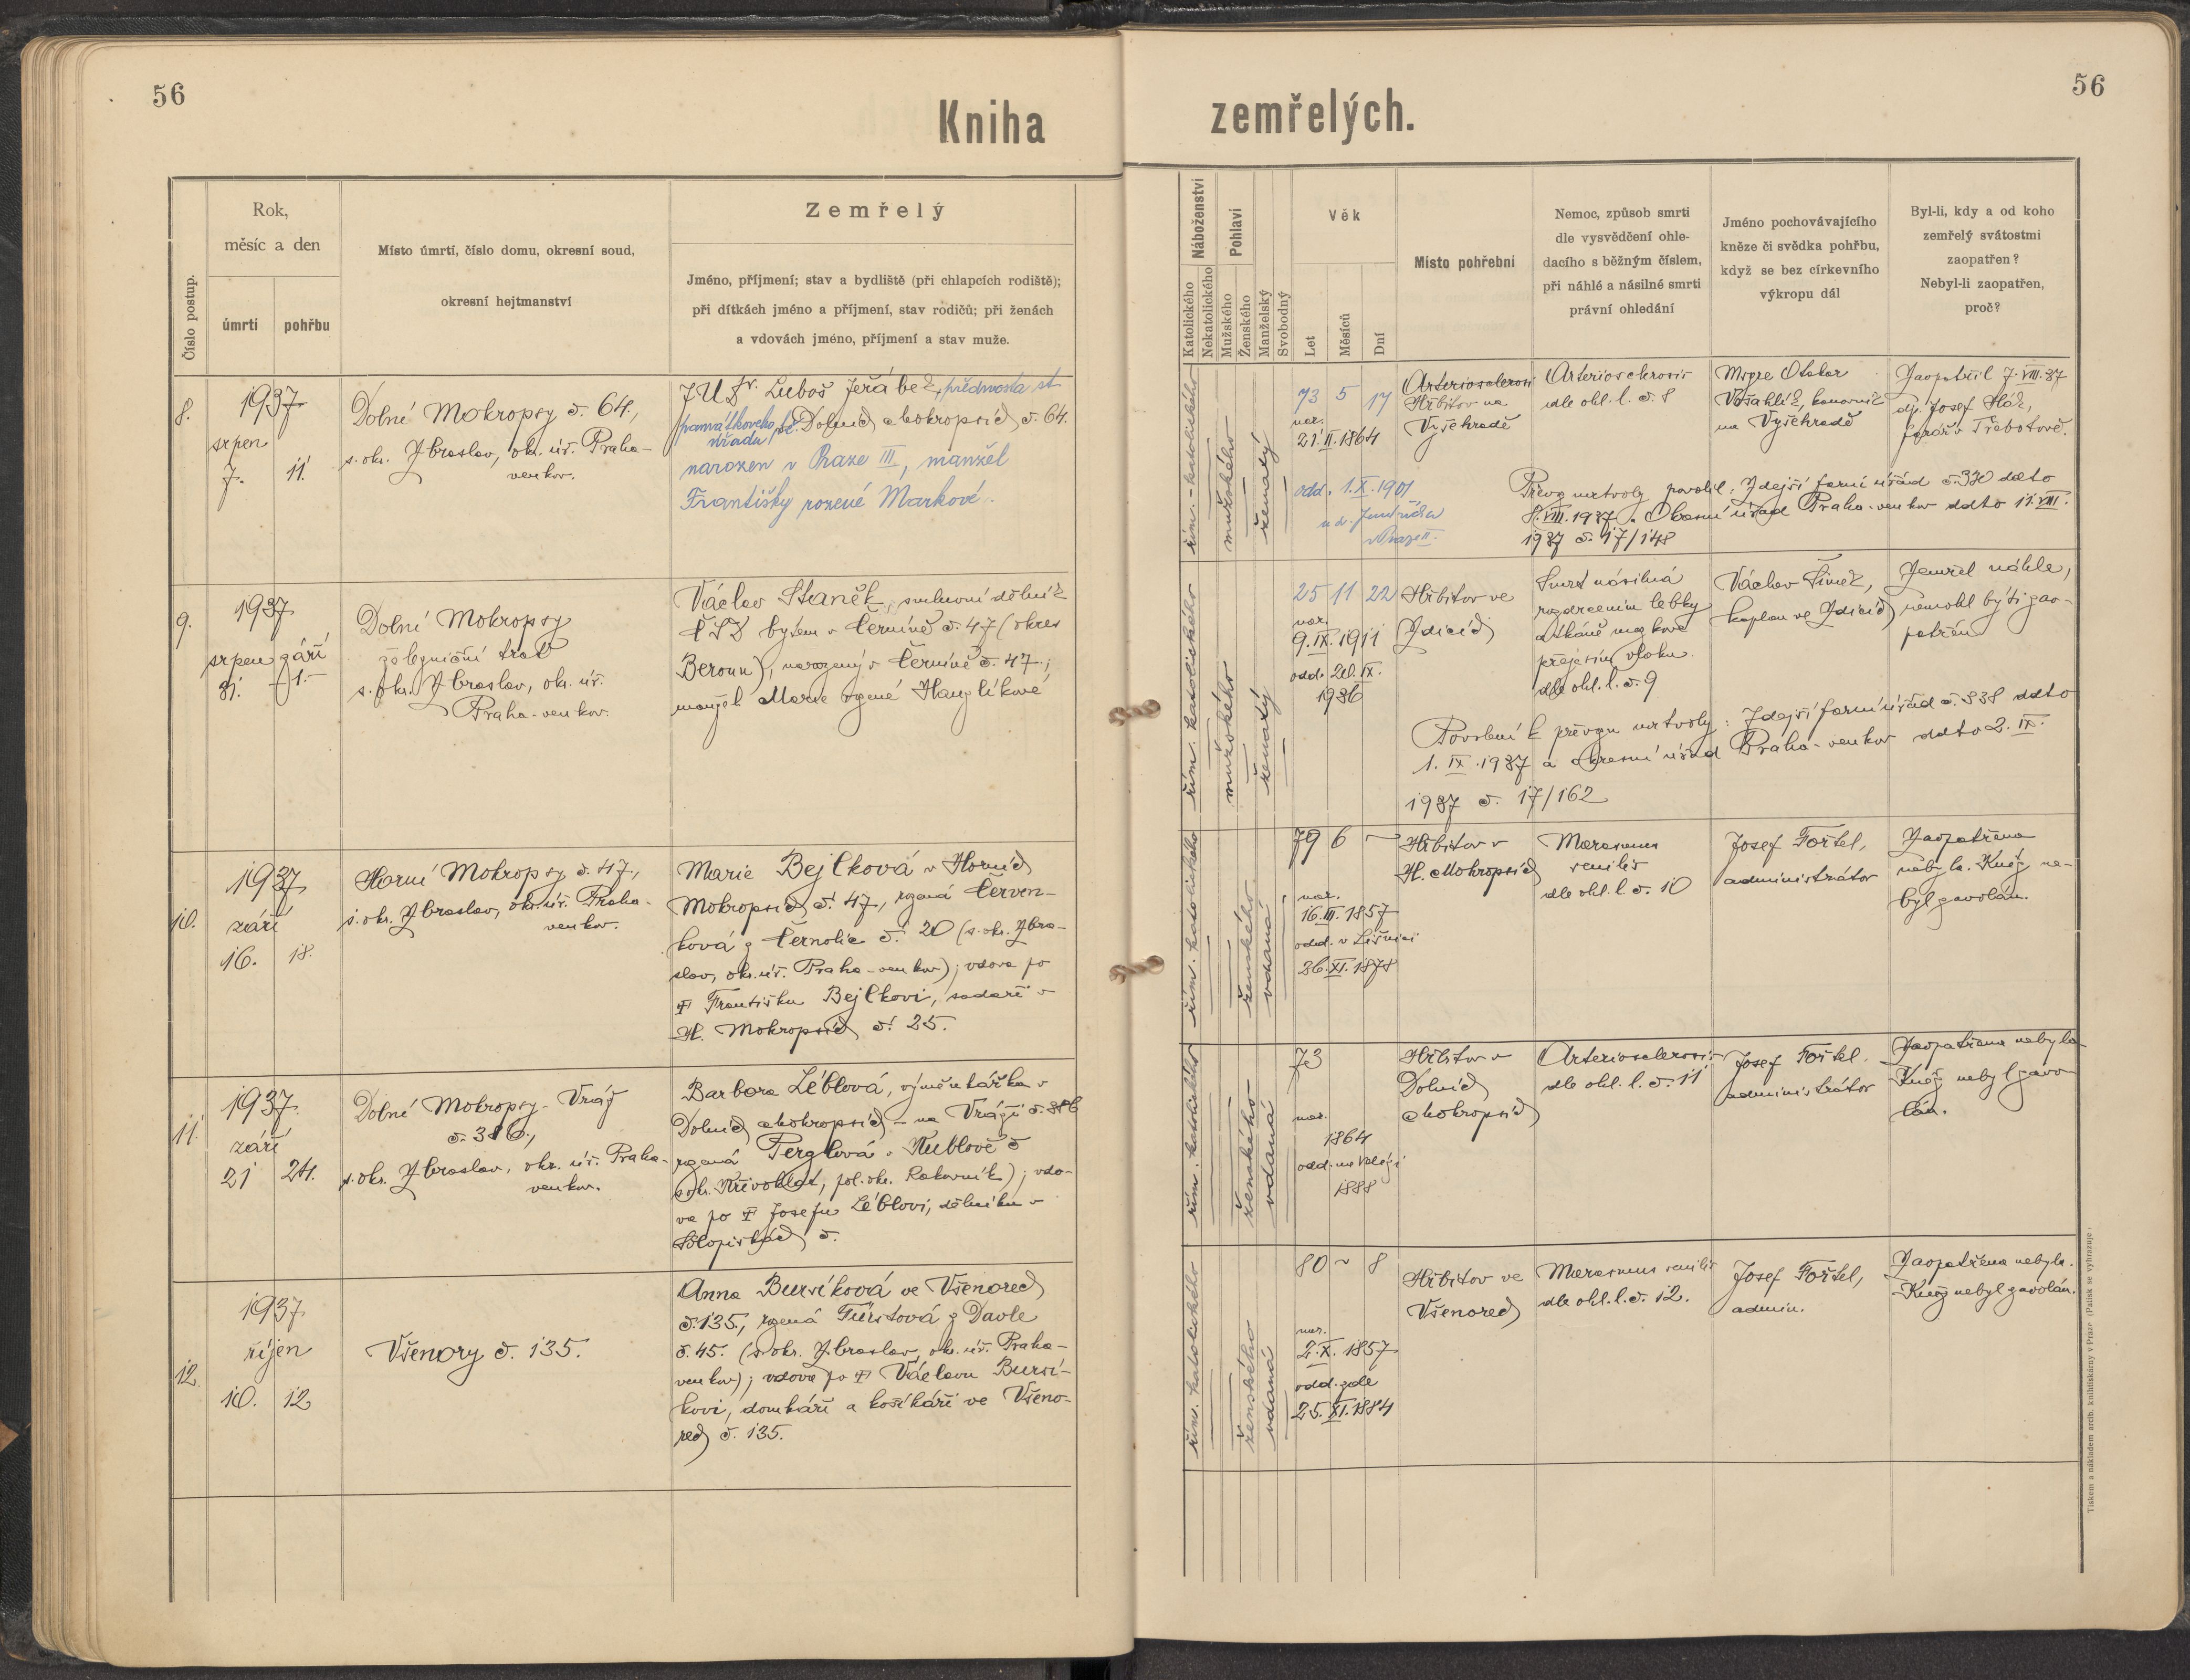 56
Kniha
Číslo postup.
Rok,
měsíc a den
úmrtí
pohřbu
Místo úmrtí, číslo domu, okresní soud,
okresní hejtmanství
Zemřelý
Jméno, příjmení; stav a bydliště (při chlapcích rodiště);
při dítkách jméno a příjmení, stav rodičů; při ženách
a vdovách jméno, příjmení a stav muže.
8.
1937
srpen
7. 11.
Dolní Mokropsy č. 64,
s. okr. Zbraslav, okr. úř. Praha-
venkov.
JUDr. Luboš Jeřábek, přednosta st.
památkového úřadu v Dolních Mokropsích č. 64.
narozen v Praze III, manžel
Františky rozené Markové.
9.
1937
srpen září
31. 1.
Dolní Mokropsy
železniční trať
s. okr. Zbraslav, okr. úř.
Praha-venkov.
Václav Staněk, smluvní dělník
ČSD bytem v Černíně č. 47 (okres
Beroun), narozený v Černíně č. 47;
manžel Marie rozené Hanzlíkové
10.
1937
září
16. 18.
Horní Mokropsy č. 47,
s. okr. Zbraslav, okr. úř. Praha-
venkov.
Marie Bejlková v Horních
Mokropsích č. 47, rozená Červen-
ková z Černolic č. 20 (s. okr. Zbra-
slav, okr. úř. Praha-venkov); vdova po
† Františku Bejlkovi, sadaři v
H. Mokropsích č. 25.
11.
1937
září
21 24.
Dolní Mokropsy - Vráž
č. 386,
s. okr. Zbraslav, okr. úř. Praha-
venkov.
Barbora Léblová, výměnkářka v
Dolních Mokropsích - na Vráži č. 386
rozená Perglová v Kublově č
s. okr. Křivoklát, pol. okr. Rakovník); vdo-
va po † Josefu Léblovi, dělníku v
Solopiskách č.
12.
1937
říjen
10. 12
Všenory č. 135.
Anna Bursíková ve Všenorech
č. 135, rozená Fürstová z Davle
č. 45. (s. okr. Zbraslav, okr. úř. Praha-
venkov); vdova po † Václavu Bursí-
kovi, domkáři a košíkáři ve Všeno-
rech č. 135.
56
zemřelých.
Náboženství
Katolického
Nekatolického
Pohlaví
Mužského
Ženského
Manželský
Svobodný
Věk
Let
Měsíců
Dní
Místo pohřební
Nemoc, způsob smrti
dle vysvědčení ohle-
dacího s běžným číslem,
při náhlé a násilné smrti
právní ohledání
Jméno pochovávajícího
kněze či svědka pohřbu,
když se bez církevního
výkropu dál
Byl-li, kdy a od koho
zemřelý svátostmi
zaopatřen?
Nebyl-li zaopatřen,
proč?
řím. - katolického
mužského
ženatý
73 5 17
nar.
21. II. 1864
odd. 1. X. 1901
u sv. Jindřicha
v Praze II.
Arteriosclerosi
Hřbitov na
Vyšehradě
Arteriosclerosis
dle ohl. l. č. 8
Msgre Otakar
kanovník
na Vyšehradě
Zaopatřil 7. VIII. 37
dp. Josef
farář v Třebotově.
Převoz mrtvoly povolil: Zdejší farní úřad č. 330 ddto
8. VIII. 1937. Okresní úřad Praha-venkov ddto 11. VIII.
1937 č. 17/148
řím. katolického
mužského
ženatý
25 11 22
nar.
9. IX. 1911
odd. 20. IX.
1936
Hřbitov ve
Zdicích
Smrt násilná
rozdrcením lebky
a tkáně mozkové
přejetím vlaku
dle ohl. l. č. 9
Václav Šimek,
kaplan ve Zdicích
Zemřel náhle,
nemohl býti zao-
patřen
Povolení k převozu mrtvoly: Zdejší farní úřad č. 338 ddto
1. IX. 1937 a okresní úřad Praha-venkov ddto 2. IX.
1937 č. 17/162
řím. katolického
ženského
vdaná
79 6 -
nar.
16. III. 1857
odd. v Líšnici
26. XI. 1878
Hřbitov v
H. Mokropsích
Marasmus
senilis
dle ohl. l. č. 10
Josef Fořtel,
administrátor
Zaopatřena
nebyla. Kněz ne-
byl zavolán.
řím. katolického
ženského
vdaná
73
nar.
1864
odd. na
1888
Hřbitov v
Dolních
Mokropsích
Arteriosclerosis
dle ohl. l. č. 11
Josef Fořtel.
administrátor
Zaopatřena nebyla
Kněz nebyl zavo-
lán.
řím. katolického
ženského
vdaná
80 - 8
nar.
2. X. 1857
odd. zde
25. XI. 1884
Hřbitov ve
Všenorech
Marasmus senilis
dle ohl. l. č. 12.
Josef Fořtel,
admin.
Zaopatřena nebyla.
Kněz nebyl zavolán.
Tiskem a nákladem arcib. knihtiskárny v Praze (Patisk se vyhrazuje)